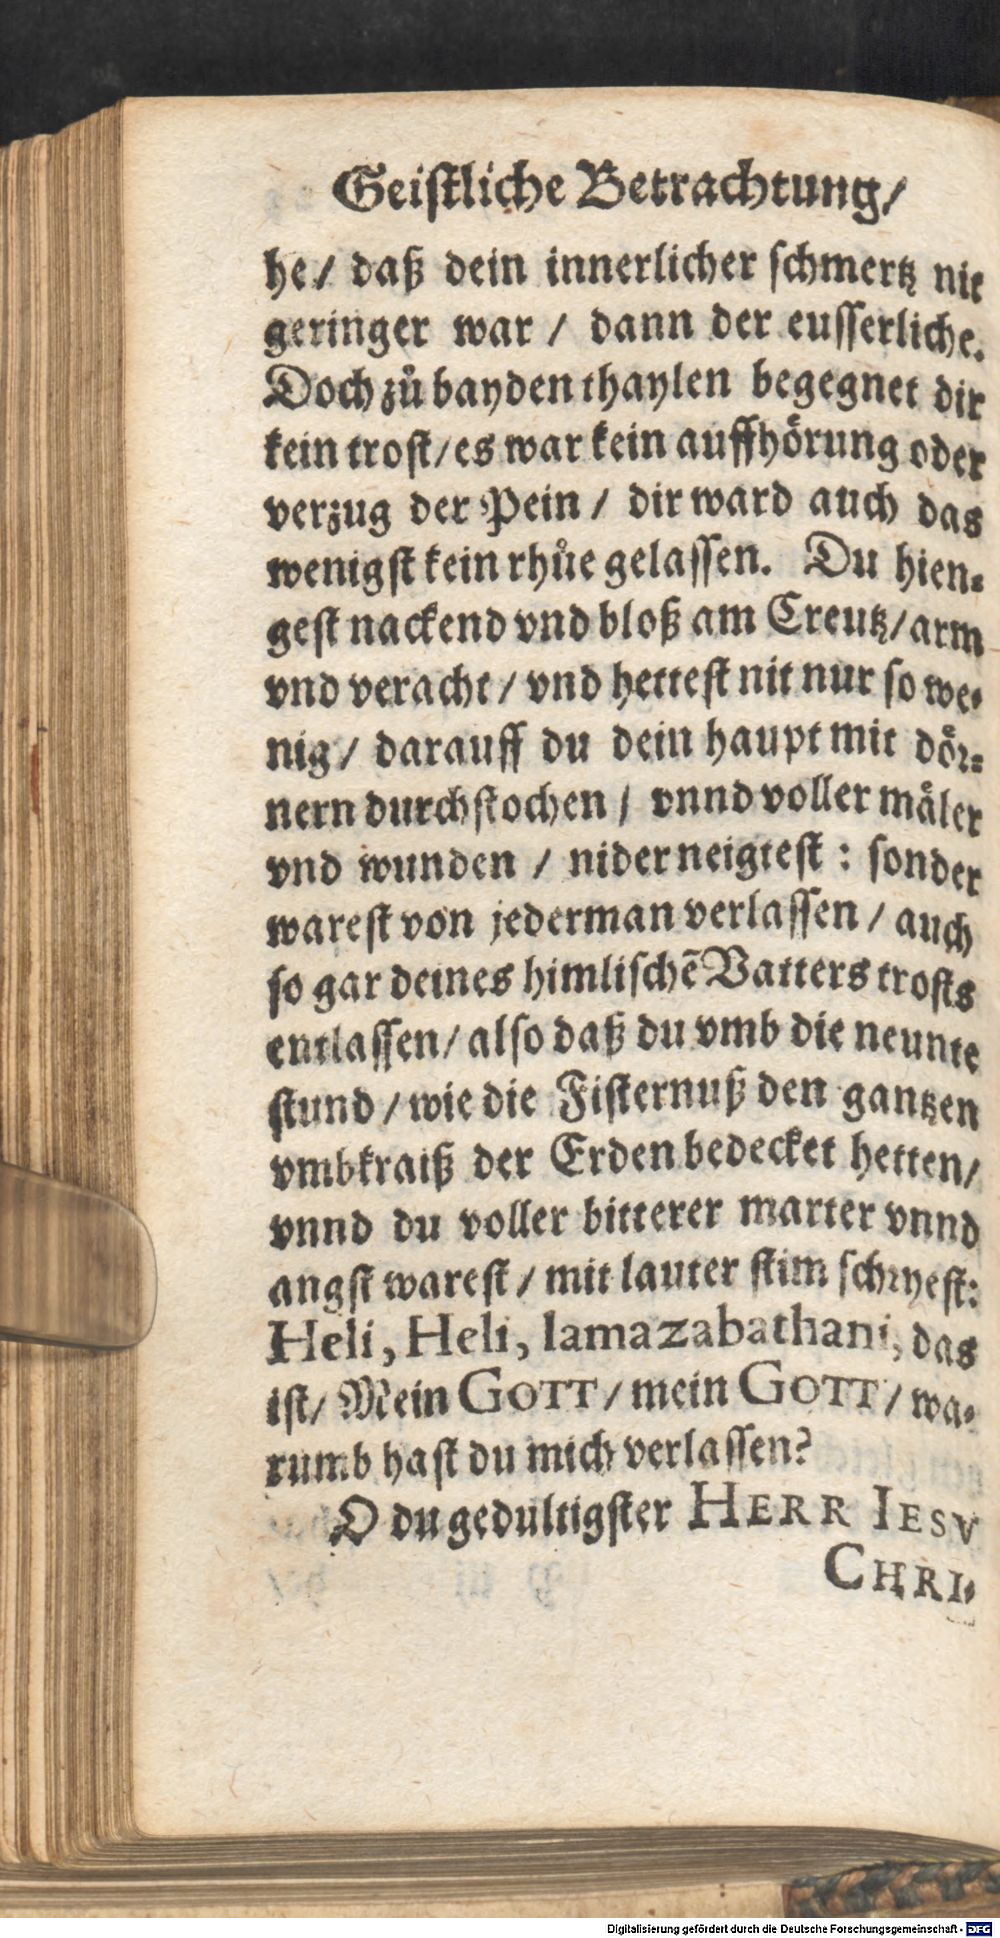 Geistliche Betrachtung/
he/ daß dein innerlicher schmertz nit
geringer war / dann der eusserliche.
Doch zů bayden thaylen begegnet dir
kein trost/ es war kein auffhörung oder
verzug der Pein / dir ward auch das
wenigst kein rhůe gelassen. Du hien-
gest nackend vnd bloß am Creutz/ arm
vnd veracht / vnd hettest nit nur so we-
nig/ darauff du dein haupt mit dör-
nern durchstochen / vnnd voller mäler
vnd wunden / nider neigtest : sonder
warest von jederman verlassen / auch
so gar deines himlischē Vatters trosts
entlassen/ also daß du vmb die neunte
stund / wie die Fisternuß den gantzen
vmbkraiß der Erden bedecket hetten/
vnnd du voller bitterer marter vnnd
angst warest / mit lauter stim schryest:
Heli, Heli, lamazabathani, das
ist/ Mein GOTT / mein GOTT / wa-
rumb hast du mich verlassen?
O du gedultigster HERR IESV
CHRI-
Digitalisierung gefördert durch die Deutsche Forschungsgemeinschaft - DFG